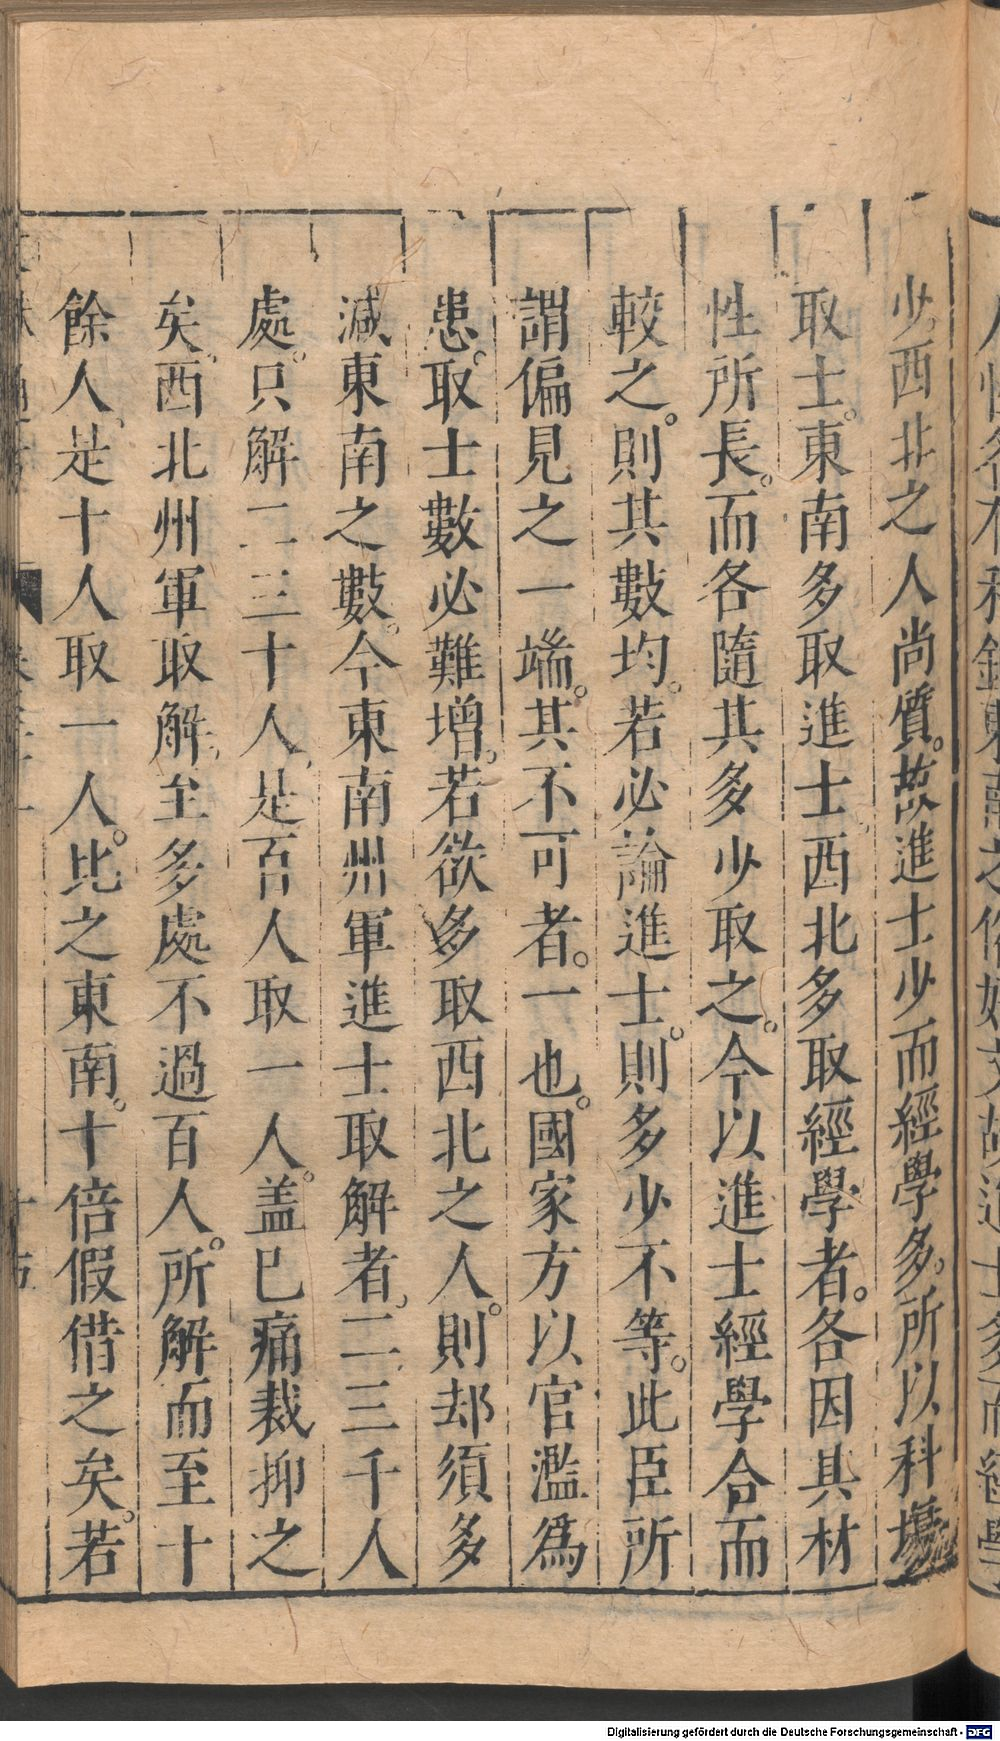 少西北之人尚質。故進士少而經學多。所以科場
取士。東南多取進士西北多取經學者。各因其材
性所長。而各隨其多少取之。今以進士經學合而
較之。則其數均。若必論進士。則多少不等。此臣所
謂偏見之一端。其不可者。一也。國家方以官濫爲
患。取士數必難增。若欲多取西北之人。則却須多
減東南之數。今東南州軍進士取解者、二三千人
處。只解二三十人、是百人取一人。盖已痛裁抑之
矣。西北州軍取解、至多處不過百人。所解而至十
餘人、是十人取一人。比之東南。十倍假借之矣。若
Digitalisierung gefördert durch die Deutsche Forschungsgemeinschaft - DFG